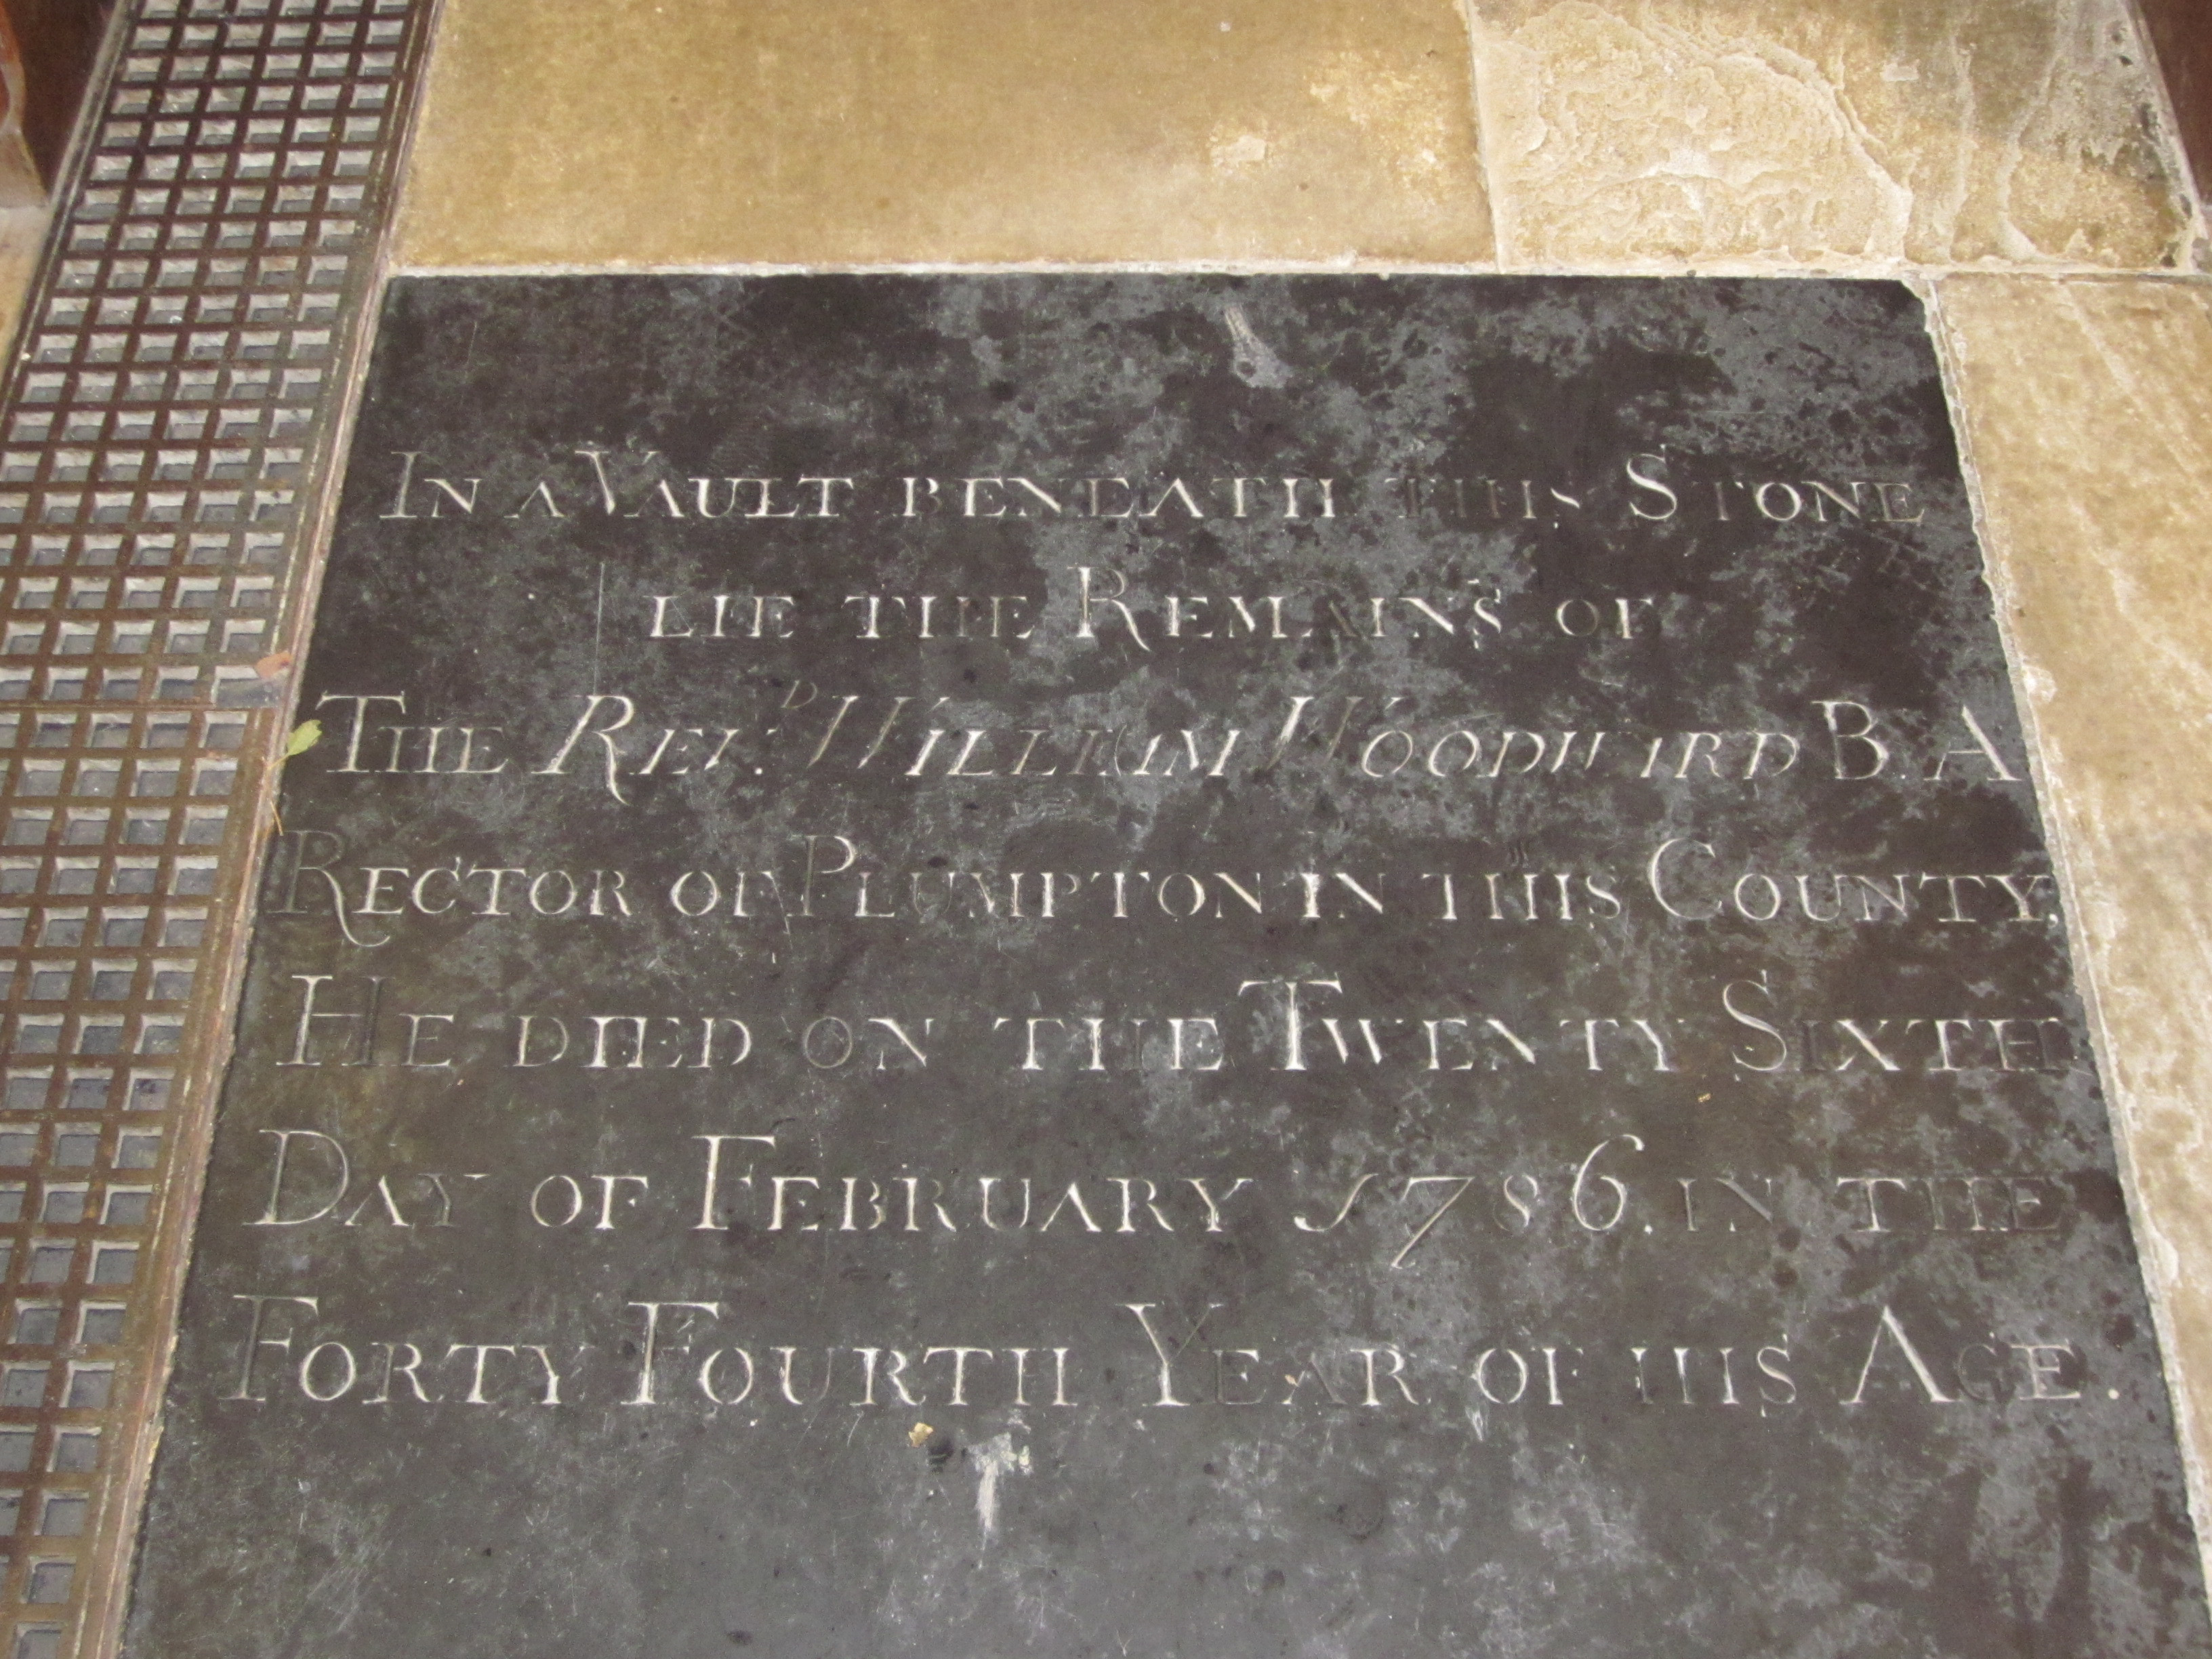 In a Vault beneath this Stone
lie the Remains of
The Rev.ᴰ William Woodward B.A
Rector of Plumpton in this County.
He died on the Twenty Sixth
Day of February 1786. in the
Forty Fourth Year of his Age.